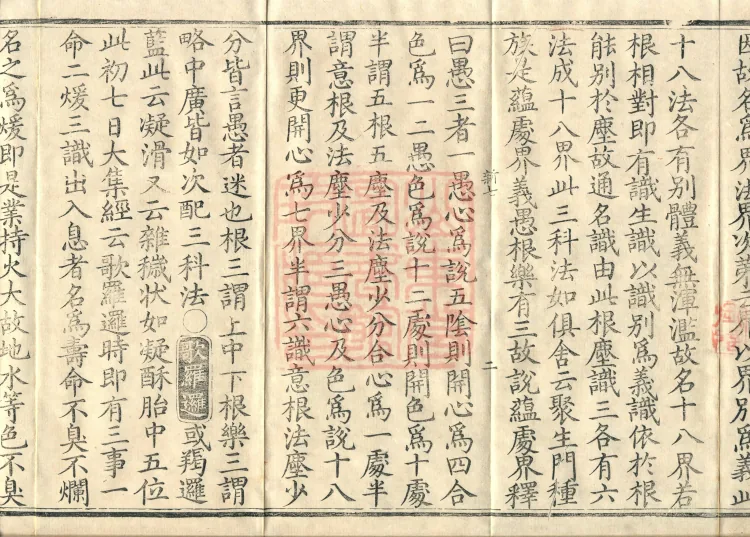 因故名爲界法界次第云界以界別爲義此
十八法各有別體義無渾濫故名十八界若
根相對即有識生識以識別爲義識依於根
能別於塵故通名識由此根塵識三各有六
法成十八界此三科法如俱舍云聚生門種
族是蘊處界義愚根樂有三故說蘊處界釋
新七 二
曰愚三者一愚心爲說五陰則開心爲四合
色爲一二愚色爲說十二處則開色爲十處
半謂五根五塵及法塵少分合心爲一處半
謂意根及法塵少分三愚心及色爲說十八
界則更開心爲七界半謂六識意根法塵少
分皆言愚者迷也根三謂上中下根樂三謂
略中廣皆如次配三科法○歌羅邏或羯邏
藍此云凝滑又云雜穢状如凝酥胎中五位
此初七日大集經云歌羅邏時即有三事一
命二煖三識出入息者名爲壽命不臭不爛
名之爲煖即是業持火大故地水等色不臭